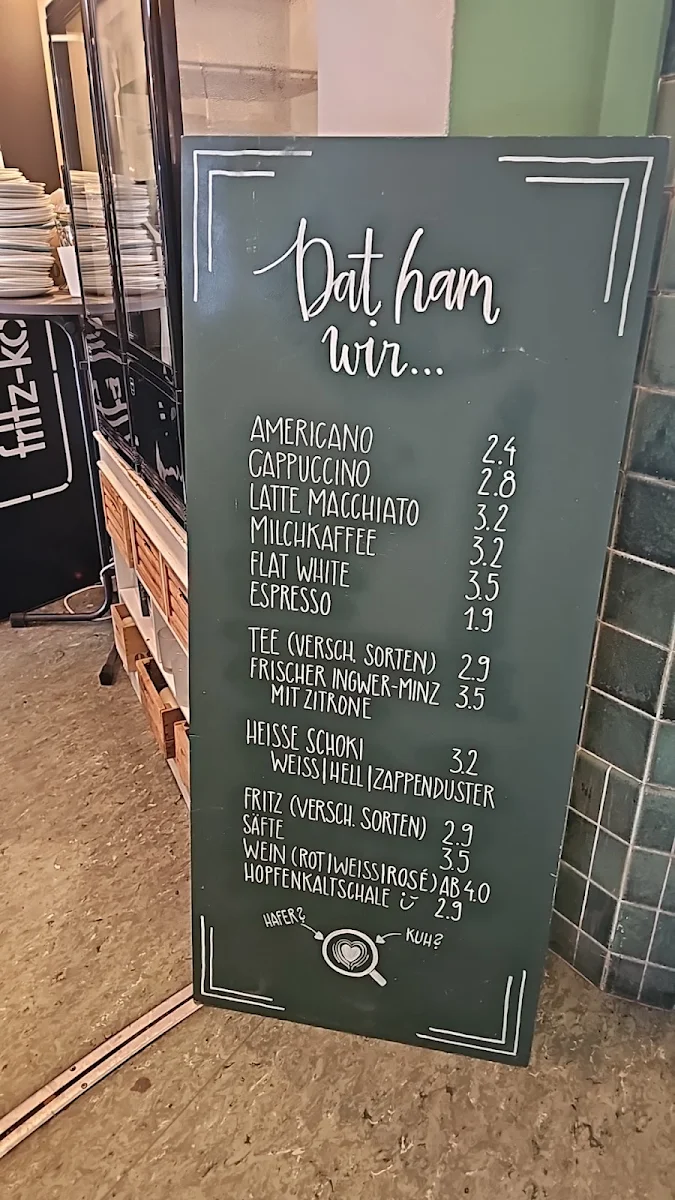 fritz-KO
Dat ham
wir...
AMERICANO 2.4
CAPPUCCINO 2.8
LATTE MACCHIATO 3.2
MILCHKAFFEE 3.2
FLAT WHITE 3.5
ESPRESSO 1.9
TEE (VERSCH. SORTEN) 2.9
FRISCHER INGWER-MINZ 3.5
MIT ZITRONE
HEISSE SCHOKI 3.2
WEISS|HELL|ZAPPENDUSTER
FRITZ (VERSCH. SORTEN) 2.9
SÄFTE 3.5
WEIN (ROT|WEISS|ROSÉ) AB 4.0
HOPFENKALTSCHALE 2.9
HAFER? KUH?